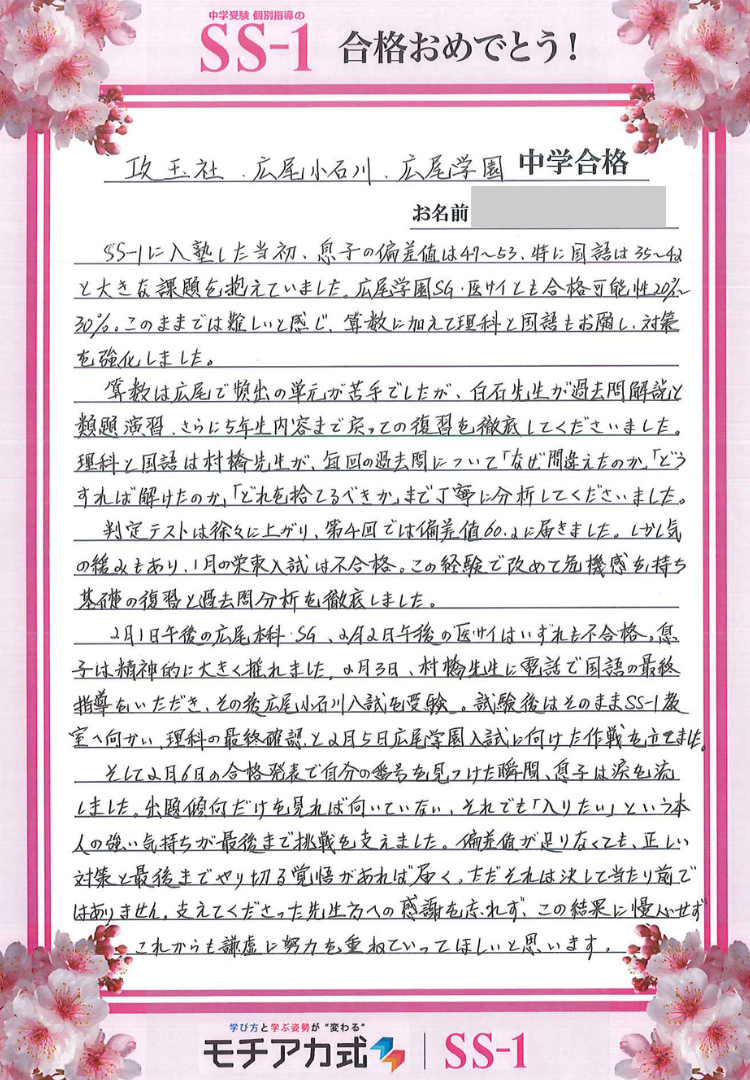 中学受験 個別指導の
SS-1 合格おめでとう!
攻玉社、広尾小石川、広尾学園 中学合格
お名前
SS-1に入塾した当初、息子の偏差値は47〜53、特に国語は35〜42
と大きな課題を抱えていました。広尾学園SG・医サイとも合格可能性20%〜
30%。このままでは難しいと感じ、算数に加えて理科と国語もお願いし、対策
を強化しました。
算数は広尾で頻出の単元が苦手でしたが、白石先生が過去問解説と
類題演習、さらに5年生内容まで戻っての復習を徹底してくださいました。
理科と国語は村橋先生が、毎回の過去問について「なぜ間違えたのか」「どう
すれば解けたのか」「どれを捨てるべきか」まで丁寧に分析してくださいました。
判定テストは徐々に上がり、第4回では偏差値60.2に届きました。しかし気
の緩みもあり、1月の栄東入試は不合格。この経験で改めて危機感を持ち
基礎の復習と過去問分析を徹底しました。
2月1日午後の広尾本科・SG、2月2日午後の医サイはいずれも不合格。息
子は精神的に大きく揺れました。2月3日、村橋先生に電話で国語の最終
指導をいただき、その後広尾小石川入試を受験。試験後はそのままSS-1教
室へ向かい、理科の最終確認と2月5日広尾学園入試に向けた作戦を立てました。
そして2月6日の合格発表で自分の番号を見つけた瞬間、息子は涙を流
しました。出題傾向だけを見れば向いていない、それでも「入りたい」という本
人の強い気持ちが最後まで挑戦を支えました。偏差値が足りなくても、正しい
対策と最後までやり切る覚悟があれば届く。ただそれは決して当たり前で
はありません。支えてくださった先生方への感謝を忘れず、この結果に慢心せず
これからも謙虚に努力を重ねていってほしいと思います。
学び方と学ぶ姿勢が"変わる"
モチアカ式 SS-1